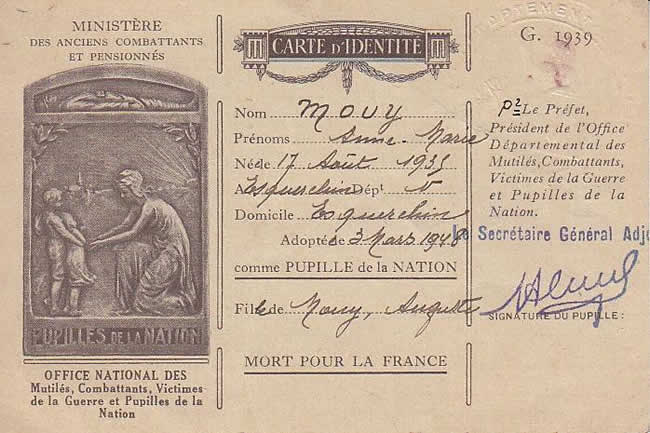 MINISTÈRE
DES ANCIENS COMBATTANTS
ET PENSIONNÉS
PUPILLES DE LA NATION
OFFICE NATIONAL DES
Mutilés, Combattants, Victimes
de la Guerre et Pupilles de la
Nation
CARTE D'IDENTITÉ
Nom MOUY
Prénoms Anne-Marie
Née le 17 Août 1935
A Esquerchin Dépt
Domicile Esquerchin
Adoptée le 3 Mars 1948
comme PUPILLE de la NATION
Fille de Mouy, Auguste
MORT POUR LA FRANCE
G. 1939
Le Préfet,
Président de l'Office
Départemental des
Mutilés, Combattants,
Victimes de la Guerre
et Pupilles de la
Nation.
Le Secrétaire Général Adjo
SIGNATURE DU PUPILLE :